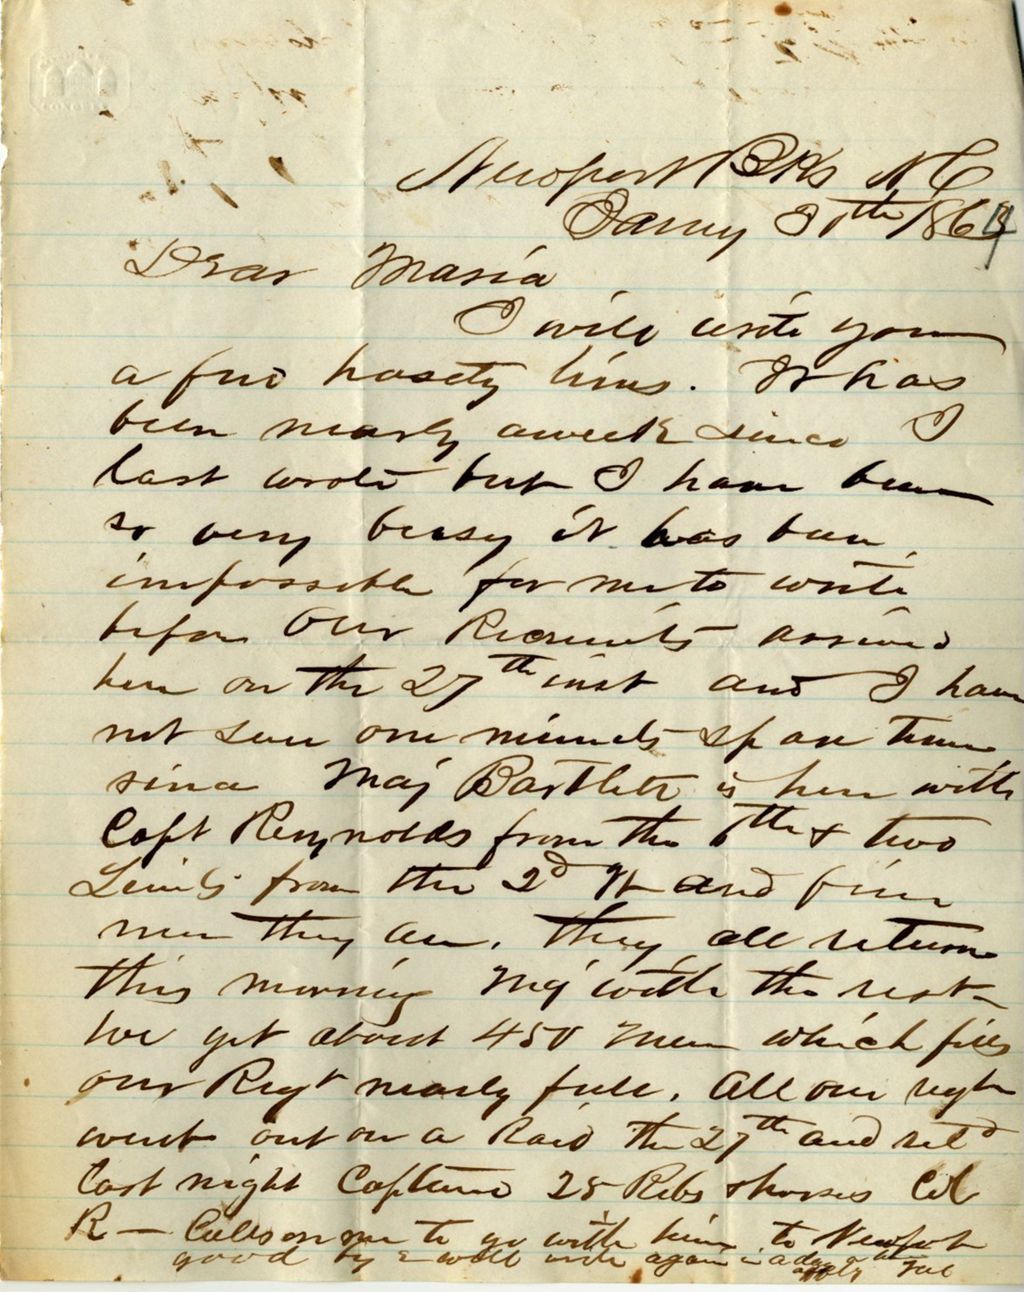 Newport Bks N C
Jany 30th 1864
Dear Maria
I will write you
a few hasety lines. It has
been nearly a week since I
last wrote but I have been
so very buisy it has been
impossible for me to write
before Our Recruits arrived
here on the 27th inst and I have
not seen one minuets spare time
since Maj Bartlett is here with
Capt Reynolds from the &
two
Leiuts from the 2d and fine
men they are. they all return
this morning Maj with the rest
We get about 450 men which fills
our Regt nearly full. All our regt
went out on a Raid the 27th and retd
last night Captured 28 Rebs & horses Col
R — Calls on me to go with him to Newport
good by I will write again in a day or